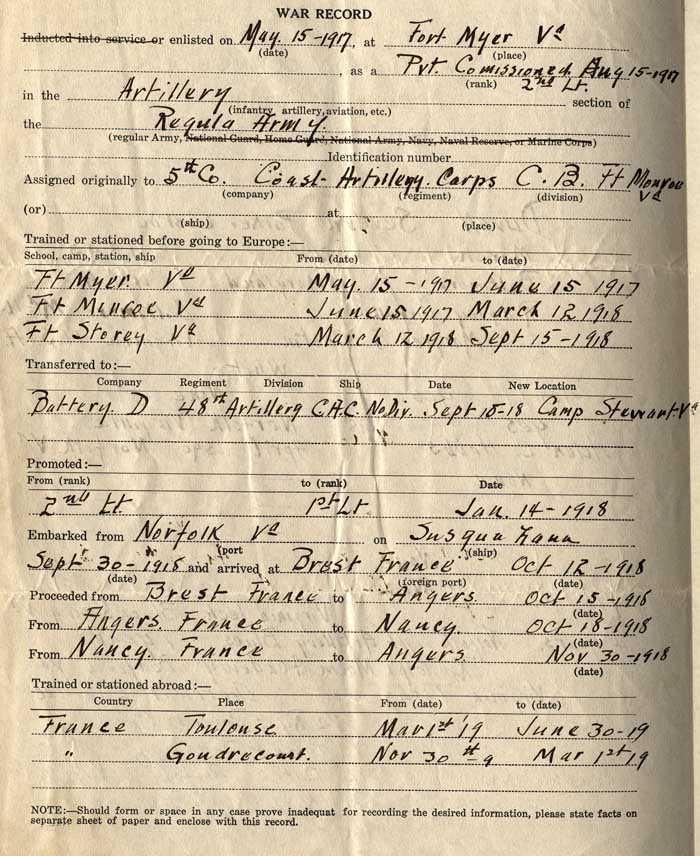 WAR RECORD
Inducted into service or enlisted on May. 15-1917, at Fort Myer Va
(date) (place)
, as a Pvt. Comissioned Aug 15-1917
(rank) 2nd Lt.
in the Artillery section of
(infantry, artillery, aviation, etc.)
the Regula Army.
(regular Army, National Guard, Home Guard, National Army, Navy, Naval Reserve, or Marine Corps)
Identification number
Assigned originally to 5th Co. Coast Artillery Corps C. B. Ft Monroe Va
(company) (regiment) (division)
(or) at
(ship) (place)
Trained or stationed before going to Europe:—
School, camp, station, ship From (date) to (date)
Ft Myer Va May. 15-1917 June 15 1917
Ft Munroe Va June 15 1917 March 12 1918
Ft Storey Va March 12 1918 Sept 15-1918
Transferred to:—
Company Regiment Division Ship Date New Location
Battery D 48th Artillery C.A.C. No Div. Sept 15-18 Camp Stewart Va
Promoted:—
From (rank) to (rank) Date
2nd Lt 1st Lt Jan. 14-1918
Embarked from Norfolk Va on Susquahana
(port (ship)
Sept 30-1918 and arrived at Brest France Oct 12-1918
(date) (foreign port) (date)
Proceeded from Brest France to Angers. Oct 15-1918
(date)
From Angers. France to Nancy. Oct 18-1918
(date)
From Nancy. France to Angers. Nov 30-1918
(date)
Trained or stationed abroad:—
Country Place From (date) to (date)
France Toulouse Mar 1st '19 June 30-19
" Gondrecourt. Nov 30th Mar 1st 19
NOTE:—Should form or space in any case prove inadequat for recording the desired information, please state facts on
separate sheet of paper and enclose with this record.